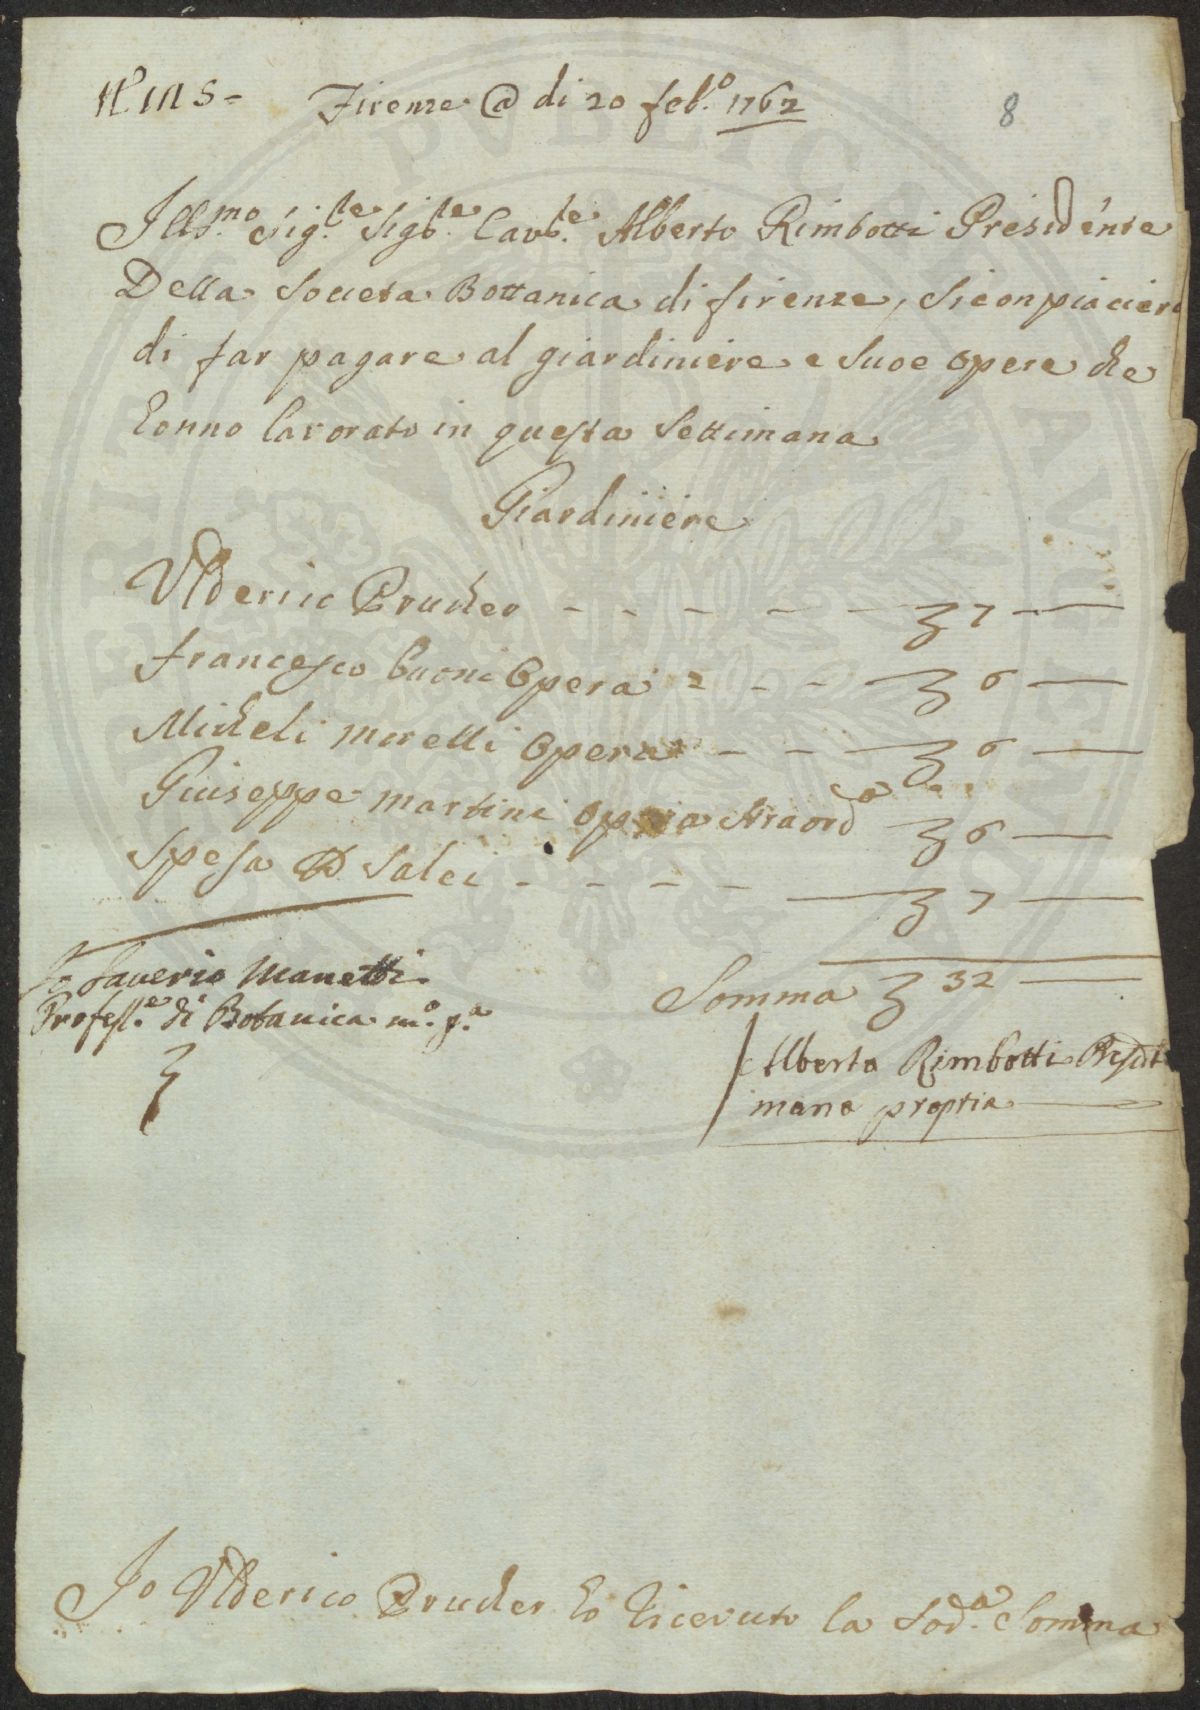 Firenze @ di 20 feb.o 1762
8
Ill.mo Sig.re Sig.re Cav.re Alberto Rimbotti Presidente
Della Societa Bottanica di firenze, Si conpiaciera
di far pagare al giardiniere e Suoe opere che
honno lavorato in questa Settimana
Giardiniere
Ulderico Prucher - - - - - 7 —
Francesco buoni Opera - - - 6 —
Micheli morelli Opera - - - 6 —
Giuseppe martini opera straord.a 6 —
Spesa di Salci - - - - 7 —
Somma 32 —
Io Saverio Manetti
Profess.e di Botanica m.o p.a
Alberto Rimbotti Presidt
mano propria
Io Ulderico Prucher ho Ricevuto la Sod.a Somma
PVBLICAE